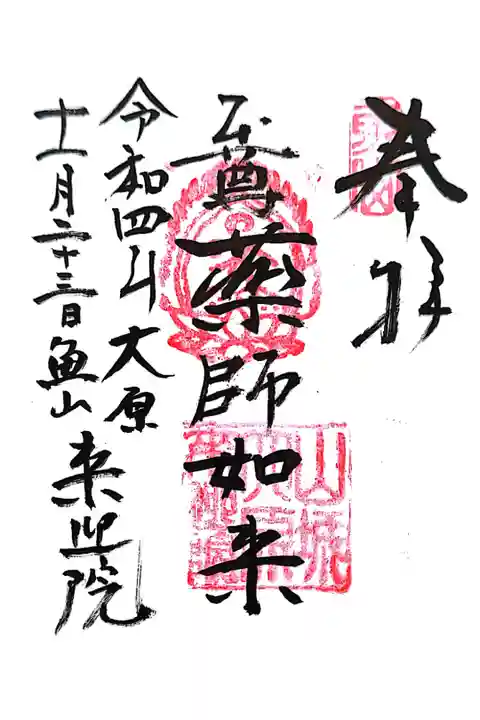 奉拝
至尊薬師如来
令和四年 大原
十一月二十三日 魚山 来迎院
山城
大原